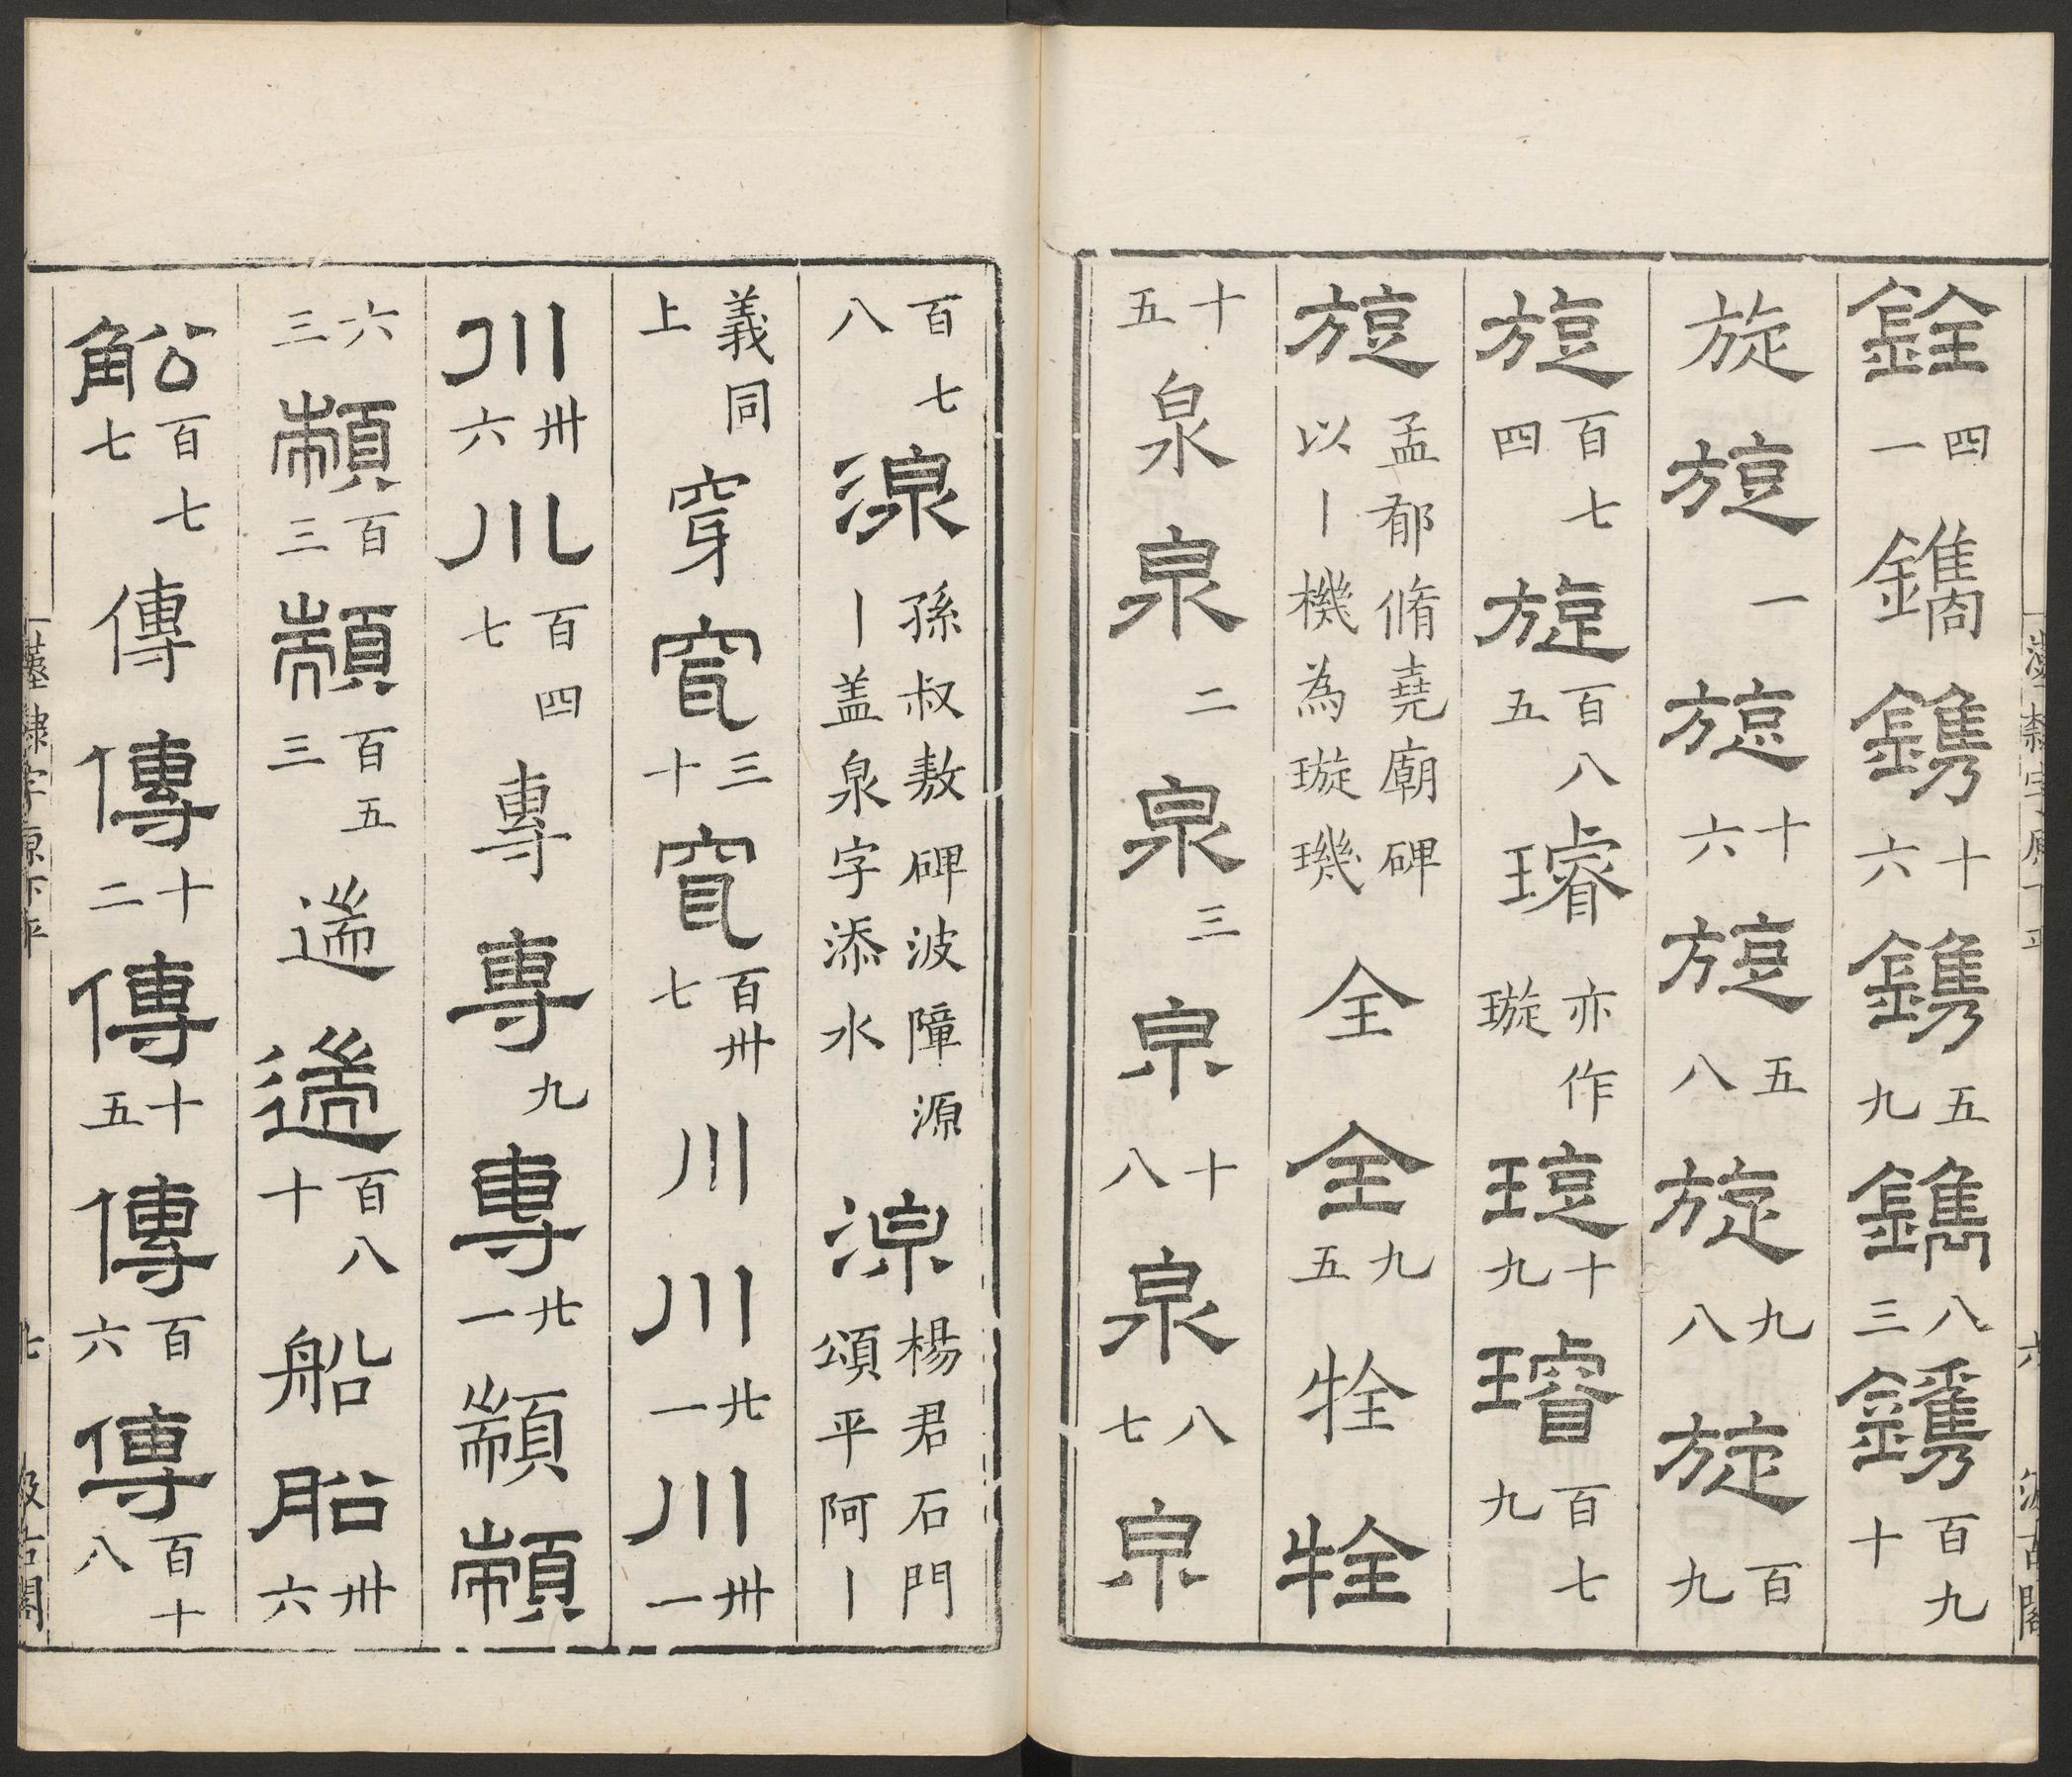 銓四一鐫鐫十六鐫五九鐫八三鐫百九十
旋旋一旋十六旋五八旋九八旋百九
旋百七四旋百八五璿亦作璇琁十九璿百七九
旋孟郁脩堯廟碑以丨機為璇璣全全九五牷牷
十五泉泉二泉三泉十八泉八七泉
百七八湶孫叔敖碑波障源丨盖泉字添水湶楊君石門頌平阿丨
義同上穿穿三十穿百卅七川川廿一川卅一
川卅六川百四七專專九專廿一顓顓
六三顓百三顓百五三遄遄百八十船船卅六
船百七七傳傳十二傳十五傳百六傳百十八
漢隸字源下平 六 汲古閣
漢隸字源下平 七 汲古閣